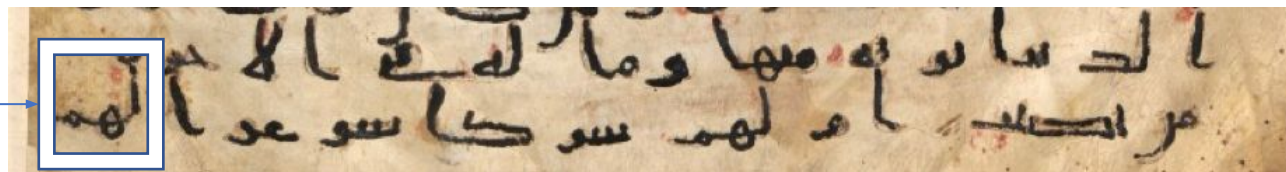 الدنيا نوته منها وما له في الاخر
من نصيب ام لهم شركا شرعوا لهم